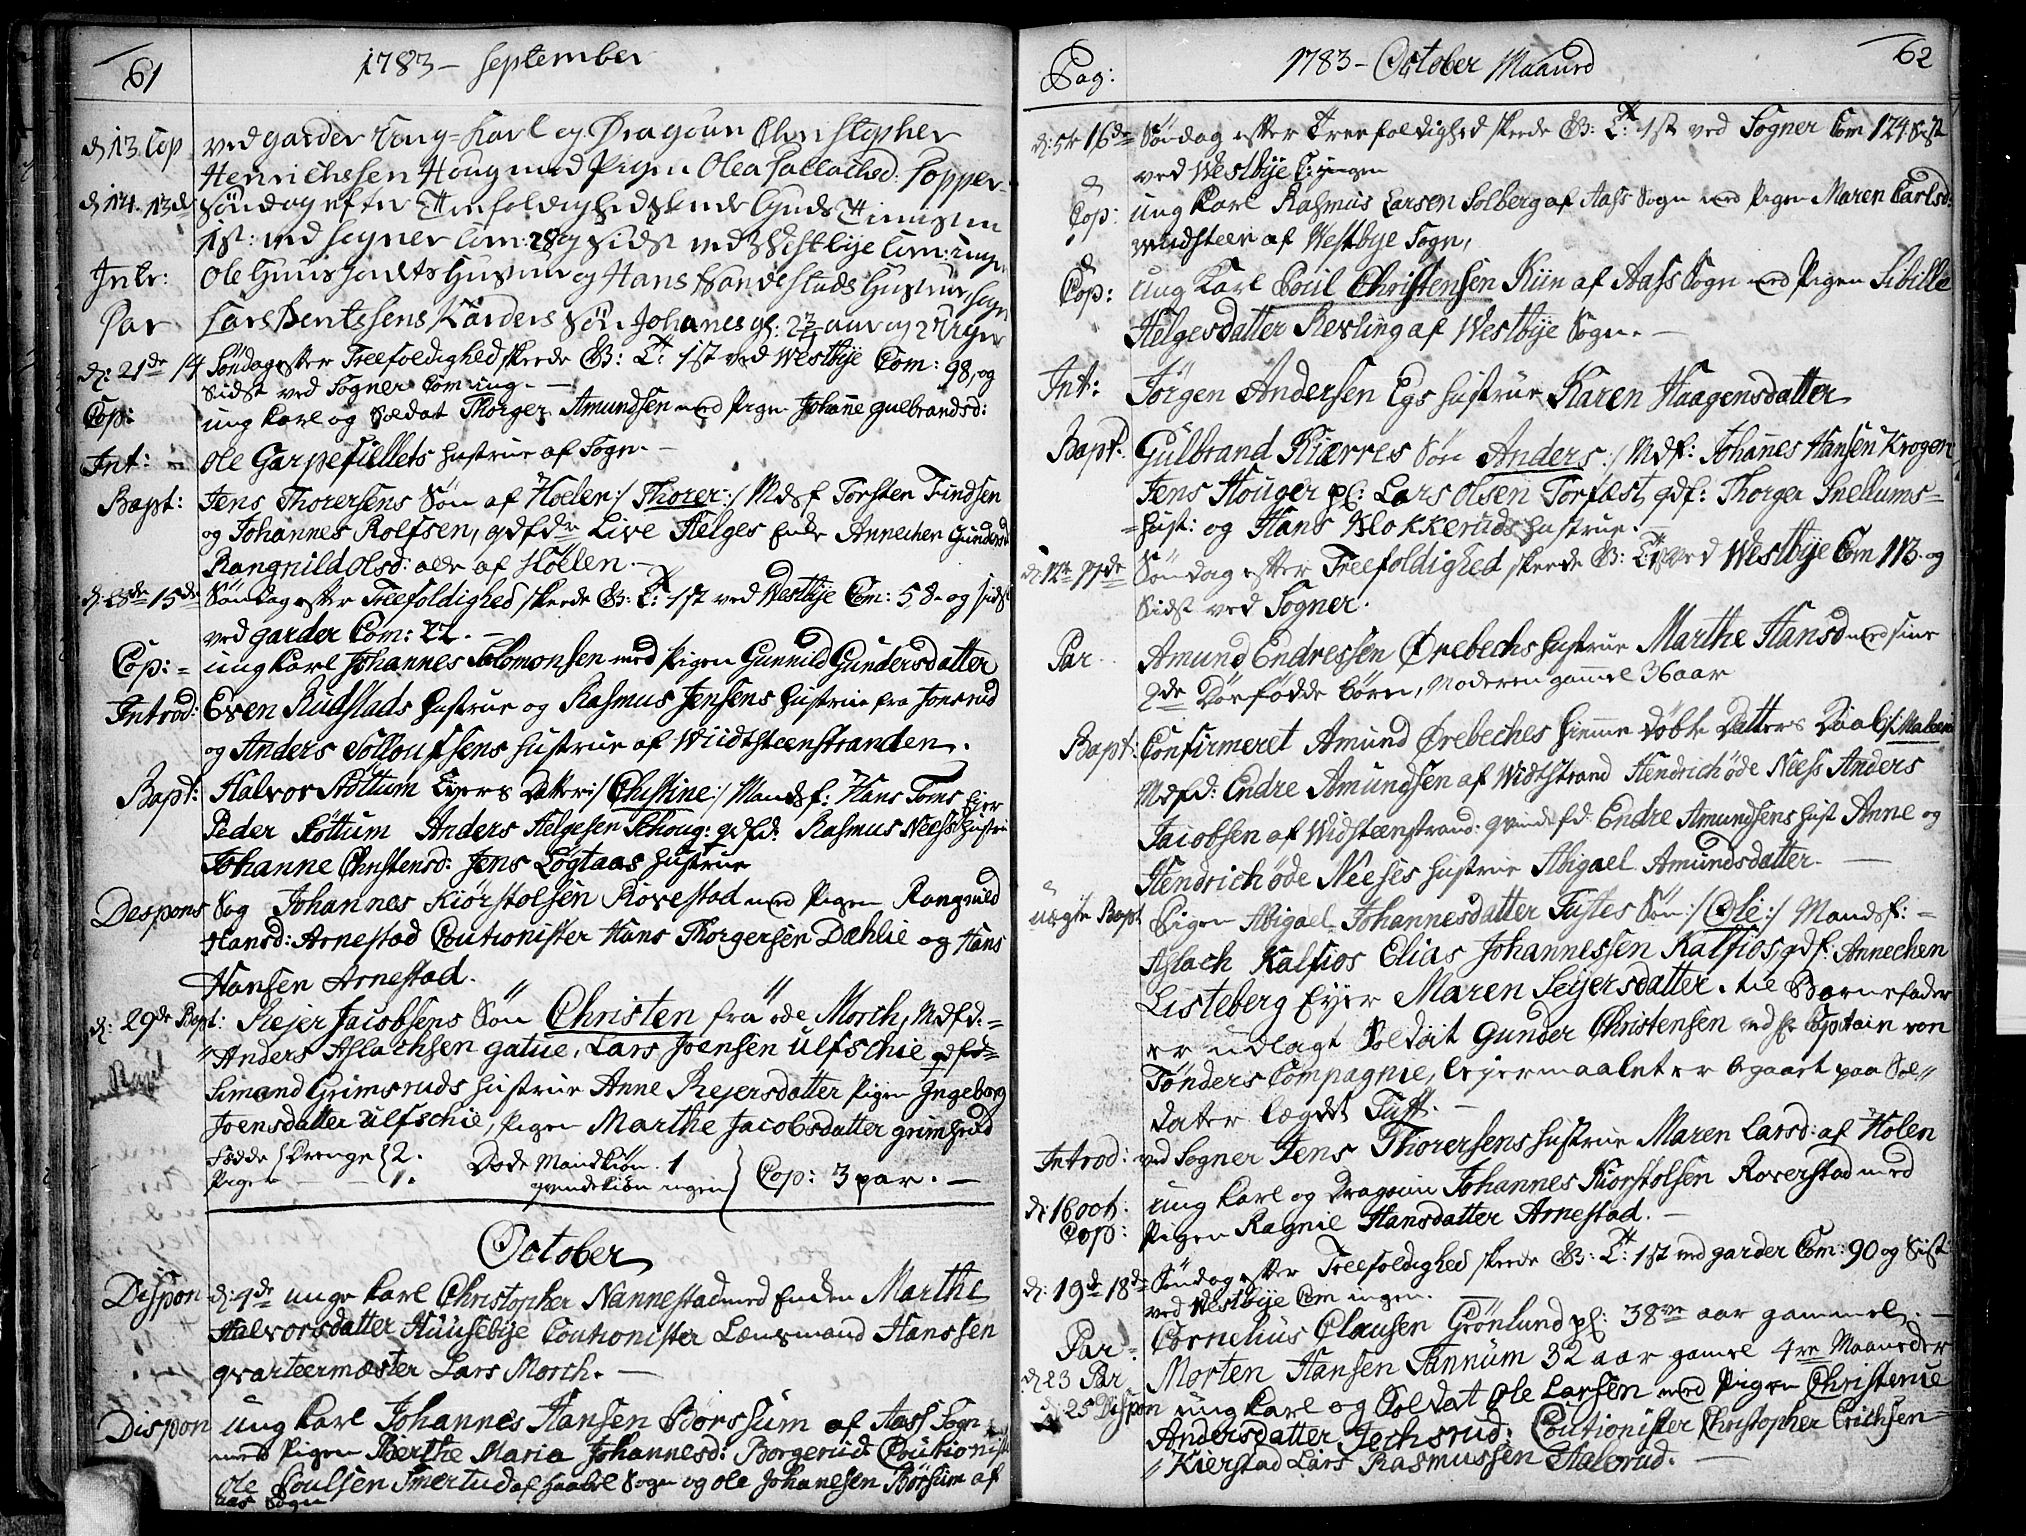 61
1783 - September
d 13. Cop ved garder Ung-Karl og Dragoun Christopher
Henrichssen Houg med Pigen Olea Sallachsd: Sopper
d 14. 13de Søndag efter Trefoldighed skeede Guds Tieneste
1st: ved Sogner Com: 28 og Sidst ved Westbye Com: ingen
Intr: Ole Huusfandts Hustrue og Hans Sandestads Hustrue,
Par Lars Bentssens Karders Søn Johanes gl: aar og
d: 21de 14 Søndag efter Treefoldighed skeede G: T: 1st ved Westbye Com: 98, og
Sidst ved Sogner Com ing. -
Cop: ung Karl og Soldat Thorger Amundsen med Pigen Johane gulbrandsd:
Int: Ole Garpefiellets Hustrue af Sogn. -
Bapt: Jens Thorersens Søn af Hoelen :/ Thorer :/ Mdsf Torsten Trindsen
og Johannes Rolfsen, qdfde Live Helges Enke Annechen Gundersd
Rangnild Olsd: alle af Hoelen. -
d: 28de 15de Søndag efter Treefoldighed skeede G: T: 1st ved Westbye Com: 58 - og sidst
ved garder Com: 22. -
Cop: = ung Karl Johannes Solomonsen med Pigen Gunnild Gundersdatter
Introd: Even Rudstads Hustrue og Rasmus Jensens Hustrue fra Joesrud
og Anders Solloufsens Hustrue af Wiidtsteenstranden.
Bapt: Halvor Køttum Eyers Datter :/ Christine :/ Mandsf: Hans Toms Eier
Peder Køttum Anders Helgesen Schoug: qdfd: Rasmus Neess Hustru
Johanne Christensd: Jens Løgtaas Hustrue
Despons Sag Johannes Kiørstolsen Rovestad med Pigen Rangnild
Hansd: Arnestad Coutionister Hans Thorgersen Dæhlie og Hans
Hansen Arnestad.
d: 29de Bapt: Rejer Jacobsens Søn Christen fra øde Morch, Mdfd: =
Anders Aslachsen gatue, Lars Joensen Ulfschie qdfd =
Simand Grimsruds Hustrue Anne Rejersdatter Pigen Ingeborg
Joensdatter Ulfschie, Pigen Marthe Jacobsdatter grimsrud
Fødde { Drenge } 2. Døde Mandkiøn. 1 } Cop: 3 par. -
Piger - - 1. qvindekiøn ingen
October
Dispon d: 9de unge Karl Christopher Nannestad med Enken Marthe
Halvorsdatter Huusebye Coutionister Lænsmand Hanssen
qvarteermæster Lars Morch. -
Dispon ung Karl Johannes Hansen Børssum af Aass Sogn
med Pigen Berthe Maria Johannesd: Borgerud: Coutionist
Ole Poulsen Smertud af Haabel Sogn og Ole Johannesen Børsum af
Aas Sogn
Pag: 1783 - October Maaned 62
d: 5te 16de Søndag efter Treefoldighed skeede G: T: 1st ved Sogner Com 124. Sidst
ved Westbye C: ingen
Cop: ung Karl Rasmus Larsen Solberg af Aass Sogn med Pigen Maren Carlsd:
wiidsteen af Westbye Sogn,
Cop: ung Karl Poul Christensen Kiin af Aass Sogn med Pigen Sibille
Helgesdatter Revling af Westbye Sogn. -
Int: Jørgen Andersen Egs Hustrue Karen Haagensdatter
Bapt: Gulbrand Kiærres Søn Anders :/ Mdf: Johannes Hansen Krogen
Jens Houger pl: Lars Olsen Torfæst, qdf: Thorger Snellums =
= Hust: og Hans Klokkeruds Hustrue. -
d: 12te 17de Søndag efter Treefoldighed skeede G: T: 1st ved Westbye Com 113. og
Sidst ved Sogner.
Par. Amund Endressen Ørebechs Hustrue Marthe Hansd med sine
2de Dødfødde Børn, Moderen gammel 36 aar
Bapt: Confirmeret Amund Ørebeches Hiemme døbte Datters Daab /: Maleen
Mdfd: Endre Amundsen af Widtstrand Hendrich øde Neess Anders
Jacobsen af Widsteenstrand: qvindfd: Endre Amundsens Hust Anne og
Hendrich øde Neeses Hustrue Abigael Amundsdatter. -
uægte Bapt Pigen Abigael Johannesdatter Tuftes Søn :/ Ole :/ Mandsf: =
Aslach Kalfios Elias Johannessen Kalfios, qdf: Annechen
Listeberg Eyer Maren Seijersdatter. til Barnefader
er udlagt Soldat Gunder Christensen ved Hr Captain von
Tønders Compagnie, leyermaalet er begaaet paa Sol=
dater lægdet Tuft. -
Introd: ved Sogner Jens Thorersens Hustrue Maren Larsd: af Hølen
d: 16 oct: ung Karl og Dragoun Johannes Kiorstolsen Roverstad med
Cop: Pigen Ragnie Hansdatter Arnestad. -
d: 19de 18de Søndag efter Treefoldighed skeede G: T: 1st ved garder Com: 90 og Sidst
ved Westbye Com ingen.
Par: Cornelius Clausen Grønlund pl: 38ve aar gammel. -
d 23 Par Morten Hansen Sannum 32 aar gamel 4re Maaneder
d 25 Dispon ung Karl og Soldat Ole Larsen med Pigen Christense
Andersdatter Jechsrud: Coutionister Christopher Erichsen
Kierstad Lars Rasmussen Stabrud. -